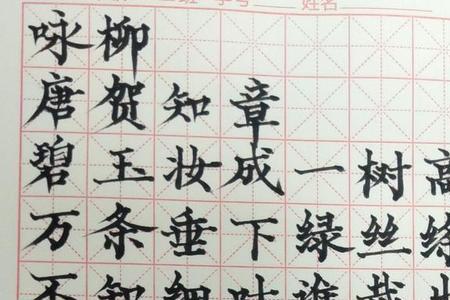 学号 姓名
咏柳
唐贺知章
碧玉妆成一树高
万条垂下绿丝绦
不知细叶谁裁出